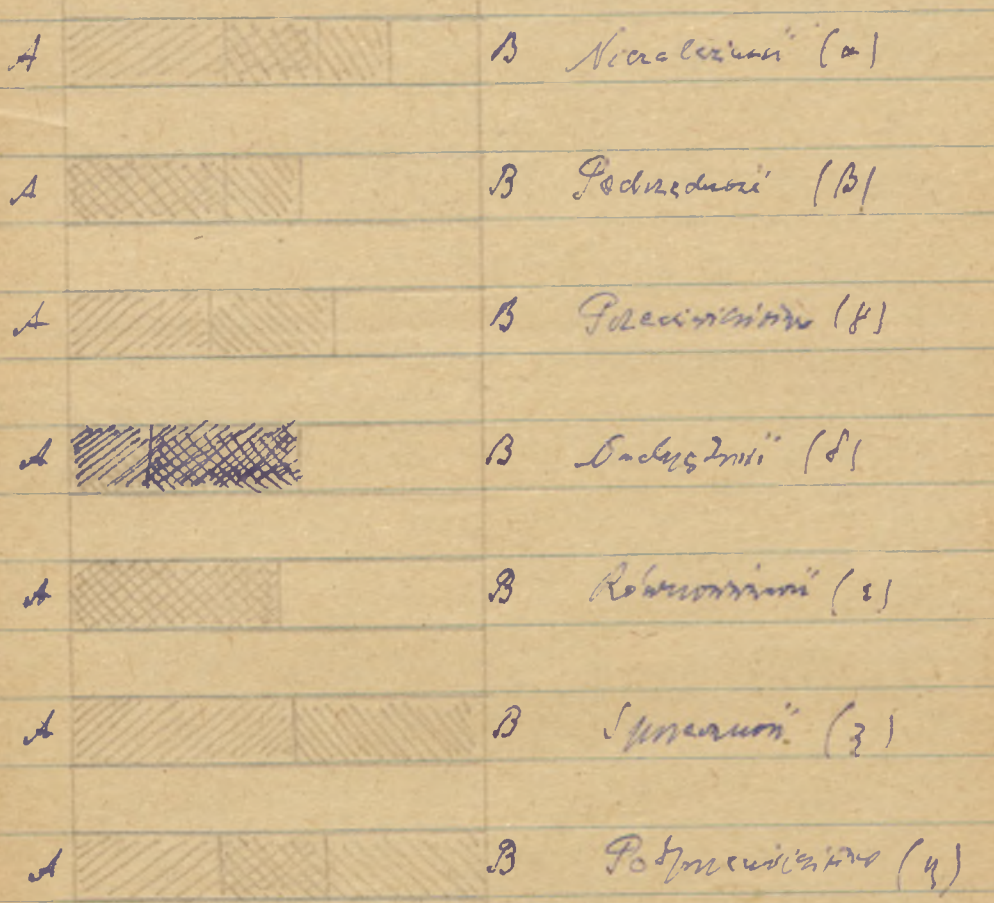 A B Niezależność (α)
A B Podrzędność (β)
A B Przeciwieństwo (γ)
A B (δ)
A B Równoważność (ε)
A B Sprzeczność (ζ)
A B Podprzeciwieństwo (η)